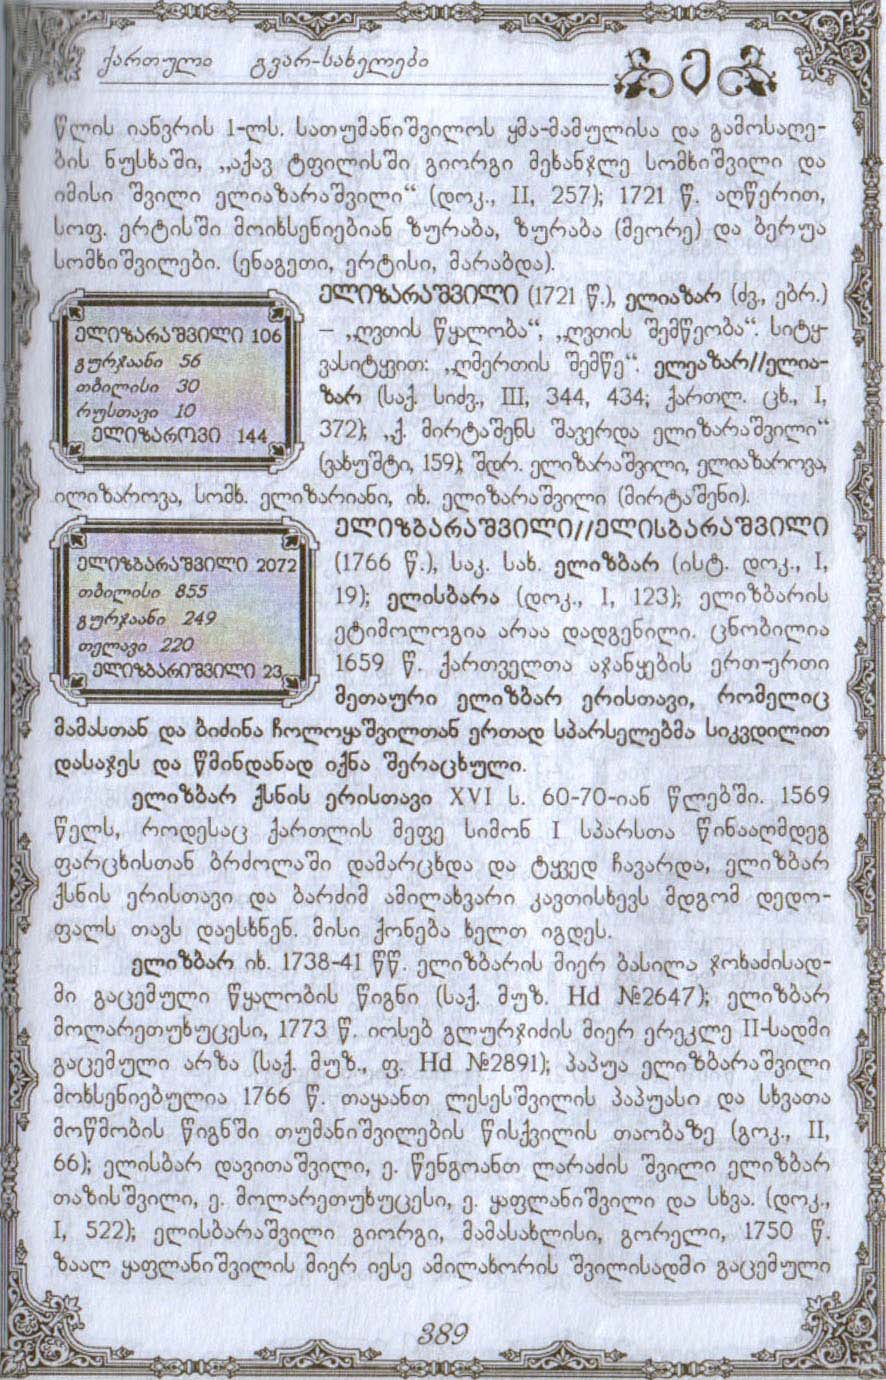 ქართული გვარ-სახელები
ე
წლის იანვრის 1-ლს. სათუმანიშვილოს ყმა-მამულისა და გამოსაღე-
ბის ნუსხაში, „აქავ ტფილისში გიორგი მეხანჯლე სომხიშვილი და
იმისი შვილი ელიაზარაშვილი“ (დოკ., II, 257); 1721 წ. აღწერით,
სოფ. ერტისში მოიხსენიებიან ზურაბა, ზურაბა (მეორე) და ბერუა
სომხიშვილები. (ენაგეთი, ერტისი, მარაბდა).
ელიზარაშვილი 106
გურჯაანი 56
თბილისი 30
რუსთავი 10
ელიზაროვი 144
ელიზარაშვილი (1721 წ.), ელიაზარ (ძვ., ებრ.)
– „ღვთის წყალობა“, „ღვთის შემწეობა“. სიტყ-
ვასიტყვით: „ღმერთის შემწე“. ელეაზარ//ელია-
ზარ (საქ. სიძვ., III, 344, 434; ქართლ. ცხ., I,
372); „ქ. მირტაშენს შავერდა ელიზარაშვილი“
(ვახუშტი, 159); შდრ. ელიზარაშვილი, ელიაზაროვა,
ილიზაროვა, სომხ. ელიზარიანი, იხ. ელიზარაშვილი (მირტაშენი).
ელიზბარაშვილი 2072
თბილისი 855
გურჯაანი 249
თელავი 220
ელიზბარიშვილი 23
ელიზბარაშვილი//ელისბარაშვილი
(1766 წ.), საკ. სახ. ელიზბარ (ისტ. დოკ., I,
19); ელისბარა (დოკ., I, 123); ელიზბარის
ეტიმოლოგია არაა დადგენილი. ცნობილია
1659 წ. ქართველთა აჯანყების ერთ-ერთი
მეთაური ელიზბარ ერისთავი, რომელიც
მამასთან და ბიძინა ჩოლოყაშვილთან ერთად სპარსელებმა სიკვდილით
დასაჯეს და წმინდანად იქნა შერაცხული.
ელიზბარ ქსნის ერისთავი XVI ს. 60-70-იან წლებში. 1569
წელს, როდესაც ქართლის მეფე სიმონ I სპარსთა წინააღმდეგ
ფარცხისთან ბრძოლაში დამარცხდა და ტყვედ ჩავარდა, ელიზბარ
ქსნის ერისთავი და ბარძიმ ამილახვარი კავთისხევს მდგომ დედო-
ფალს თავს დაესხნენ. მისი ქონება ხელთ იგდეს.
ელიზბარ იხ. 1738-41 წწ. ელიზბარის მიერ ბასილა ჯოხაძისად-
მი გაცემული წყალობის წიგნი (საქ. მუზ. Hd №2647); ელიზბარ
მოლარეთუხუცესი, 1773 წ. იოსებ გლურჯიძის მიერ ერეკლე II-სადმი
გაცემული არზა (საქ. მუზ., ფ. Hd №2891); პაპუა ელიზბარაშვილი
მოხსენიებულია 1766 წ. თაყაანთ ლესესშვილის პაპუასი და სხვათა
მოწმობის წიგნში თუმანიშვილების წისქვილის თაობაზე (გოკ., II,
66); ელისბარ დავითაშვილი, ე. წენგოანთ ლარაძის შვილი ელიზბარ
თაზისშვილი, ე. მოლარეთუხუცესი, ე. ყაფლანიშვილი და სხვა. (დოკ.,
I, 522); ელისბარაშვილი გიორგი, მამასახლისი, გორელი, 1750 წ.
ზაალ ყაფლანიშვილის მიერ იესე ამილახორის შვილისადმი გაცემული
389